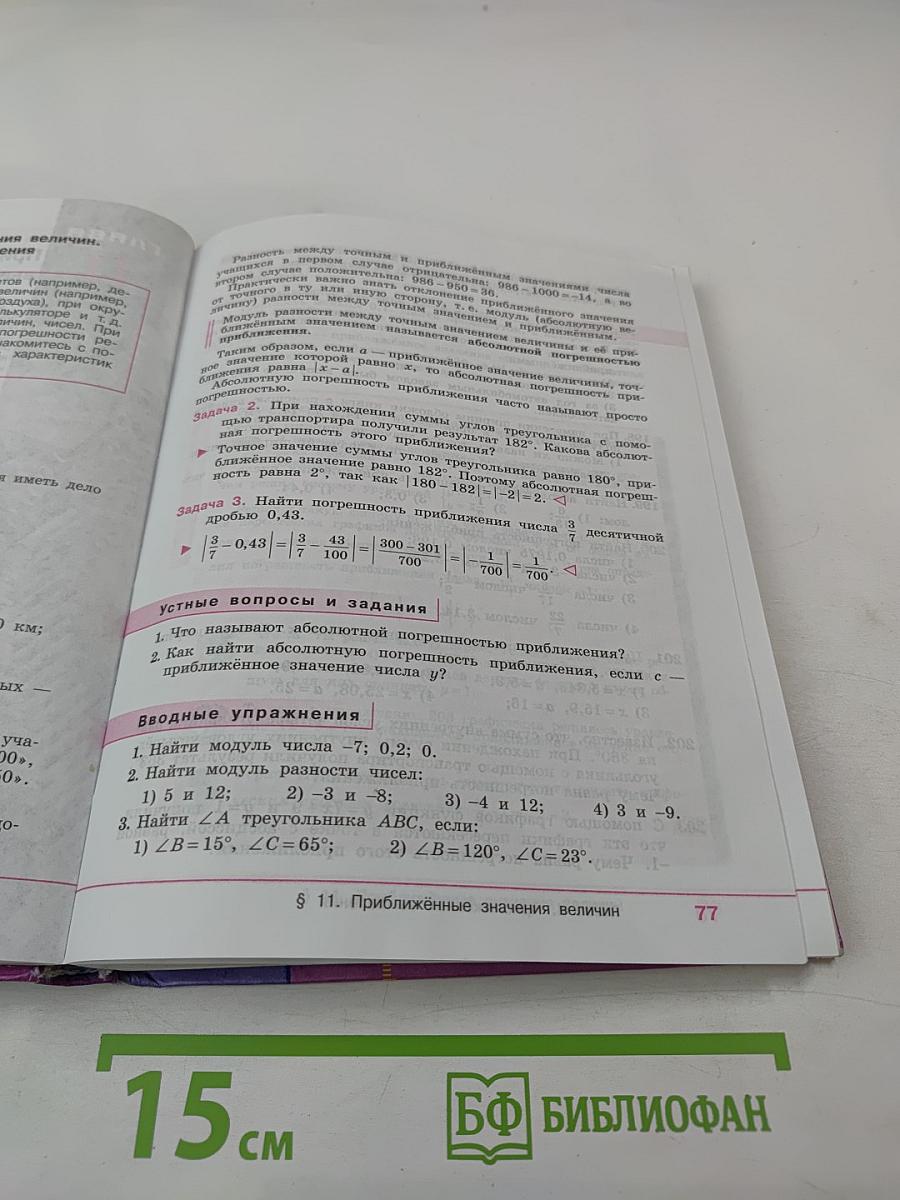 ния величин.
ения
етов (например, де-
величин (например,
оздуха), при окру-
лькуляторе и т. д.
личин, чисел. При
погрешности ре-
накомитесь с по-
характеристик
я иметь дело
0 км;
ых —
уча-
00»,
50».
до-
Разность между точным и приближённым значениями числа
учащихся в первом случае отрицательна: 986 − 1000 = −14, а во
втором случае положительна: 986 − 950 = 36.
Практически важно знать отклонение приближённого значения
от точного в ту или иную сторону, т. е. модуль (абсолютную ве-
личину) разности между точным значением и приближённым.
Модуль разности между точным значением величины и её при-
ближённым значением называется абсолютной погрешностью
приближения.
Таким образом, если a — приближённое значение величины, точ-
ное значение которой равно x, то абсолютная погрешность при-
ближения равна |x − a|.
Абсолютную погрешность приближения часто называют просто
погрешностью.
Задача 2. При нахождении суммы углов треугольника с помо-
щью транспортира получили результат 182°. Какова абсолют-
ная погрешность этого приближения?
Точное значение суммы углов треугольника равно 180°, при-
ближённое значение равно 182°. Поэтому абсолютная погреш-
ность равна 2°, так как |180 − 182| = |−2| = 2.
Задача 3. Найти погрешность приближения числа 3/7 десятичной
дробью 0,43.
|3/7 − 0,43| = |3/7 − 43/100| = |(300 − 301)/700| = |−1/700| = 1/700.
Устные вопросы и задания
1. Что называют абсолютной погрешностью приближения?
2. Как найти абсолютную погрешность приближения, если c —
приближённое значение числа y?
Вводные упражнения
1. Найти модуль числа −7; 0,2; 0.
2. Найти модуль разности чисел:
1) 5 и 12; 2) −3 и −8; 3) −4 и 12; 4) 3 и −9.
3. Найти ∠A треугольника ABC, если:
1) ∠B = 15°, ∠C = 65°; 2) ∠B = 120°, ∠C = 23°.
§ 11. Приближённые значения величин 77
15 см
БФ БИБЛИОФАН